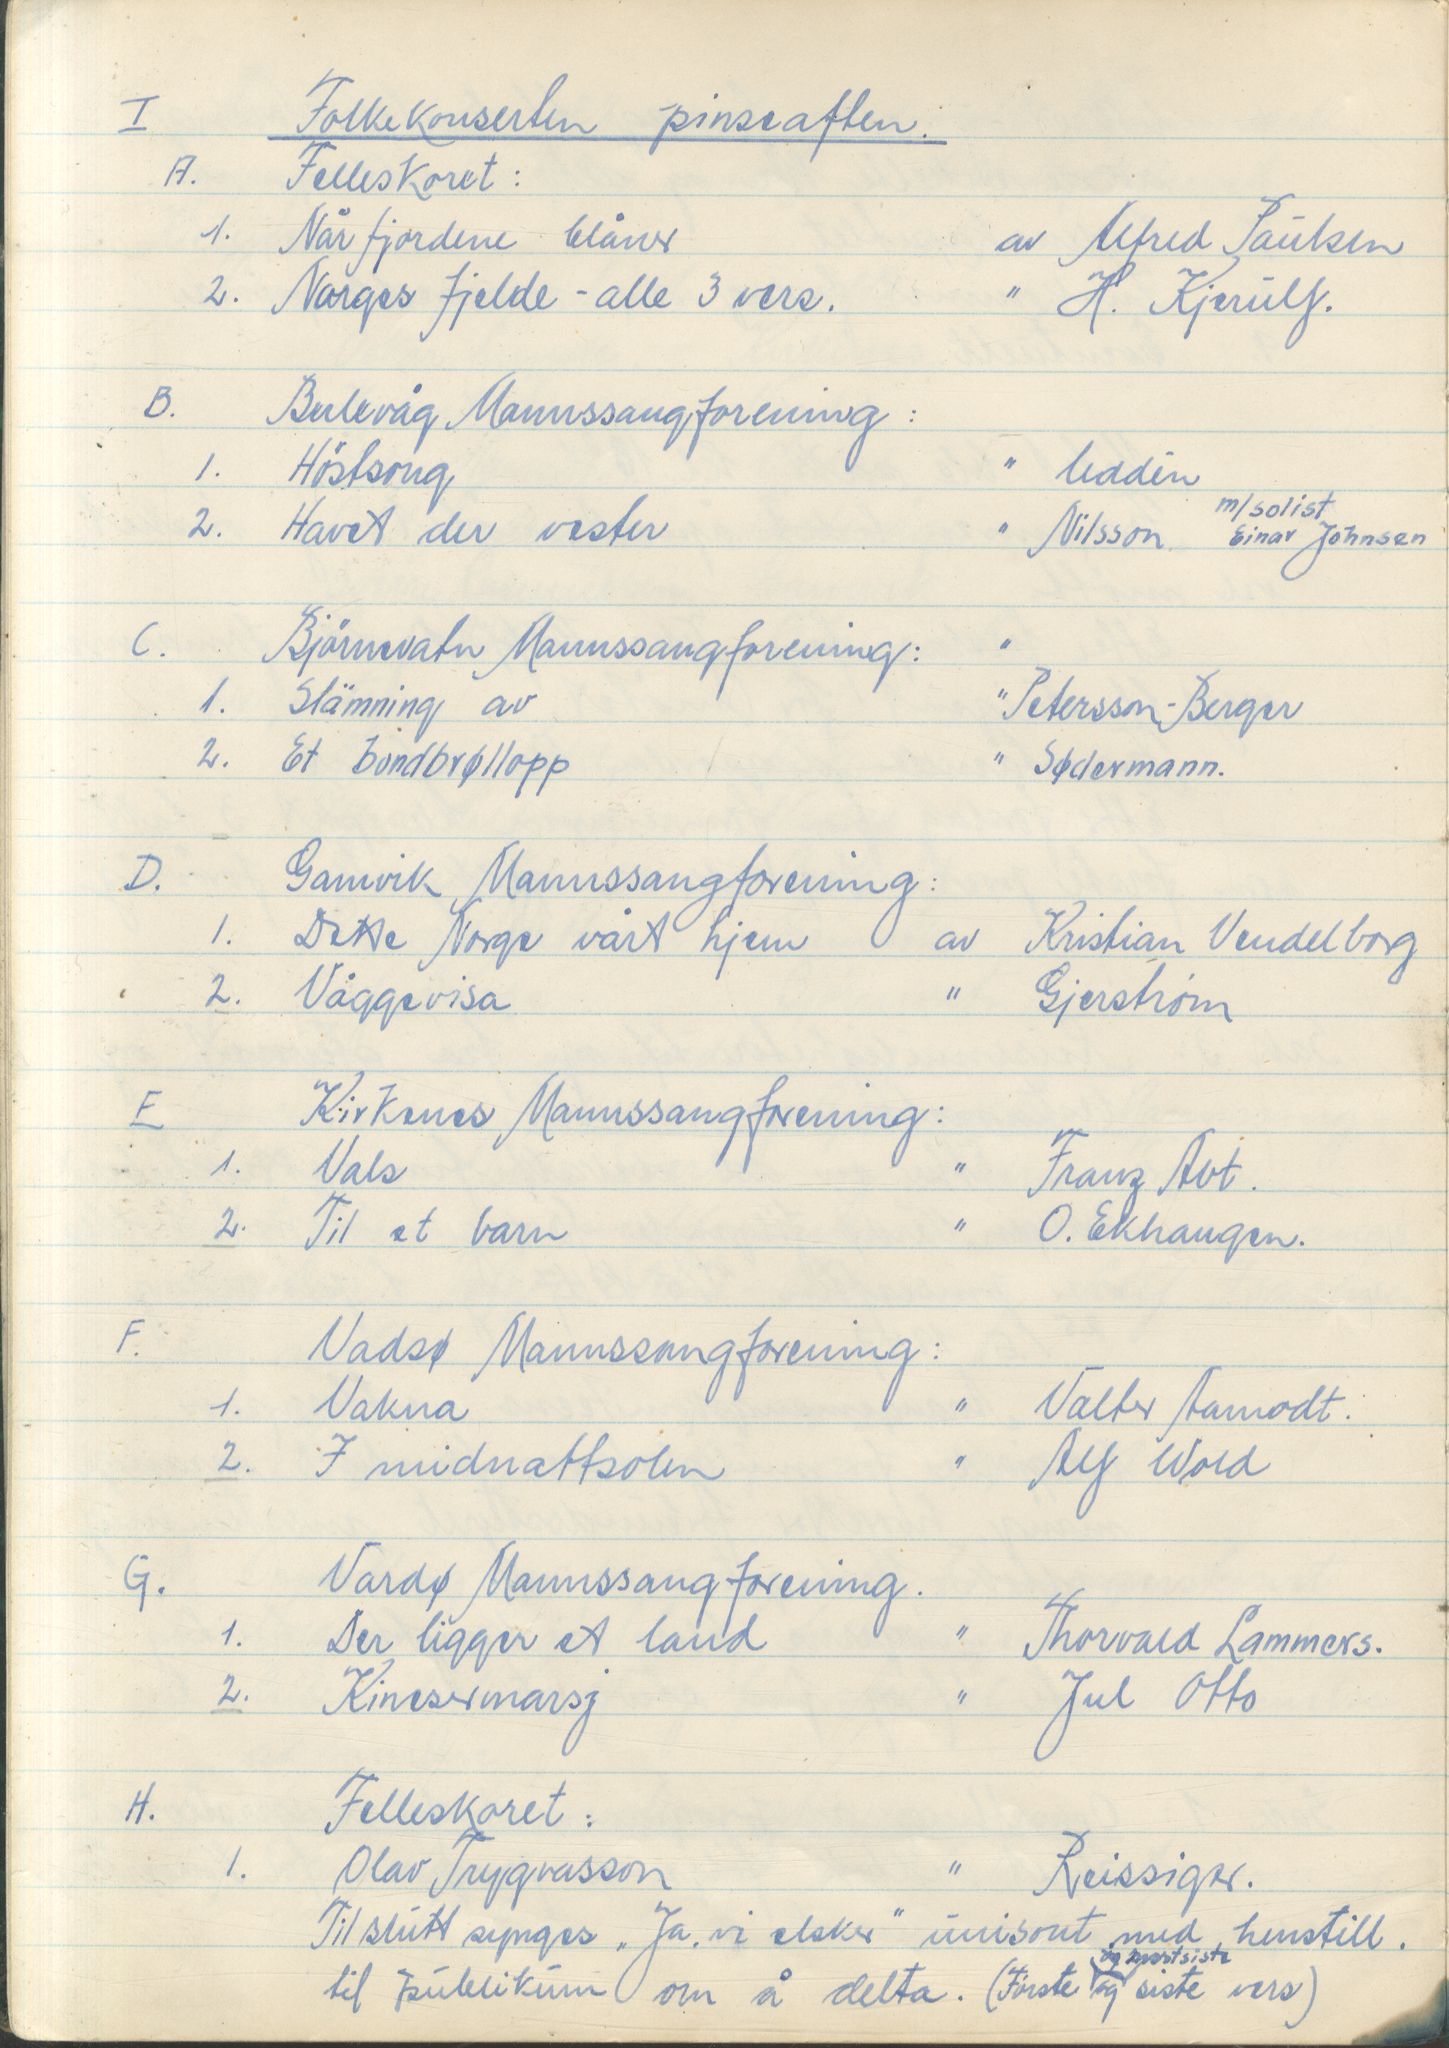 I Folkekonserten pinseaften.
A. Felleskoret:
1. Når fjordene blåner av Alfred Paulsen
2. Norges fjelde - alle 3 vers. " H. Kjerulf.
B. Bulevåg Mannssangforening:
1. Höstsong " Uddén
2. Havet der vester " Nilsson m/solist Einar Johnsen
C. Björnevatn Mannssangforening: "
1. Stämning av " Petersson-Berger
2. Et bondbrøllopp " Sødermann.
D. Gamvik Mannssangforening:
1. Dette Norge vårt hjem av Kristian Vendelborg
2. Våggevisa " Gjerstrøm
E Kirkenes Mannssangforening:
1. Vals " Franz Abt.
2. Til et barn " O. Ekhaugen.
F. Vadsø Mannssangforening:
1. Vakna " Valter Aamodt.
2. I midnattsolen " Alf Wold
G. Vardø Mannssangforening.
1. Der ligger et land " Thorvald Lammers.
2. Kinesermarsj " Jul Otto
H. Felleskoret:
1. Olav Trygvasson " Reissiger.
Til slutt synges „Ja, vi elsker" unisont med henstill.
og nestsiste
til publikum om å delta. (Første og siste vers)